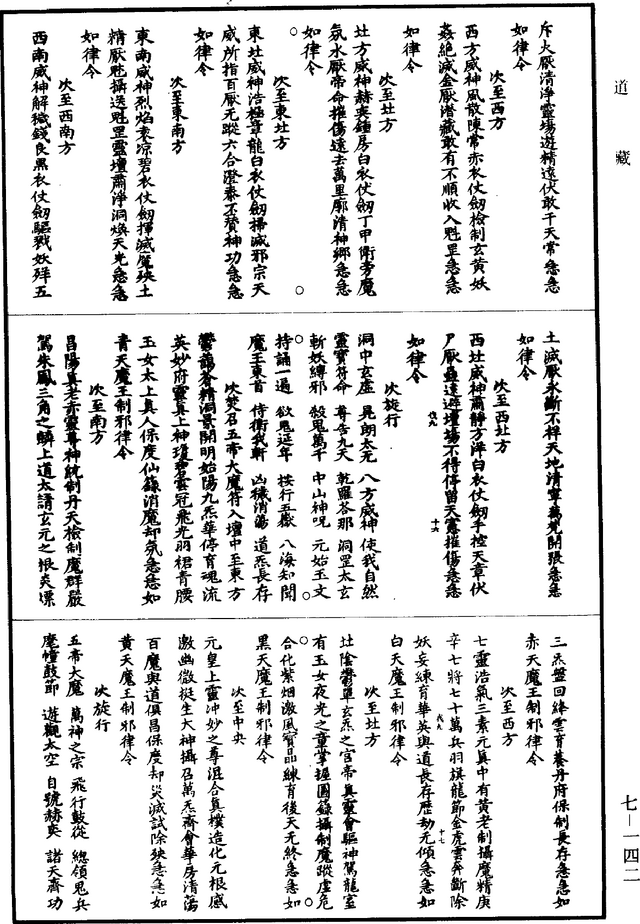 道藏
斥火厭清淨靈場遊精遠伏敢干天常急急
如律令
次至西方
西方威神風散陳常赤衣仗劒檢制玄黄妖
姦絶滅金厭潛藏敢有不順收入魁罡急急
如律令
次至北方
北方威神赫奕鍾房白衣仗劒丁甲衛旁魔
氛水厭帝命摧傷遠去萬里廓清神鄉急急
如律令
次至東北方
東北威神浩極章龍白衣仗劒掃滅邪宗天
威所指百厭无蹤六合澄泰丕贊神功急急
如律令
次至東南方
東南威神烈焰衰凉碧衣仗劒揮滅魔殃土
精厭尅攝送魁罡靈壇肅淨洞煥天光急急
如律令
次至西南方
西南威神解穢錢良黑衣仗劒驅戮妖殍五
土滅厭永斷不祥天地清寧萬梵開張急急
如律令
次至西北方
西北威神肅靜方洋白衣仗劒手控天章伏
尸厭蠱遠避壇場不得停留天憲摧傷急急
如律令
次旋行
洞中玄虛 晃朗太元 八方威神 使我自然
靈寶符命 尊告九天 乾羅荅那 洞罡太玄
斬妖縛邪 殺鬼萬千 中山神呪 元始玉文
持誦一遍 欲鬼延年 按行五嶽 八海知聞
魔王束首 侍衛我軒 凶穢消蕩 道炁長存
次焚召五帝大魔符入壇中至東方
鬱藹蒼精洞景開明始陽九炁華停育魂流
英妙府靈真上神瓊碧雲冠飛光羽裙青腰
玉女太上真人保度仙錄消魔却氛急急如
青天魔王制邪律令
次至南方
昌陽真老赤靈尊神統制丹天檢制魔群嚴
駕朱鳳三角之麟上道太清玄元之根炎熛
三炁盤回絳雲育養丹府保制長存急急如
赤天魔王制邪律令
次至西方
七靈浩氣三素元真中有黄老制攝魔精庚
辛七將七十萬兵羽旗龍節金虎雲軿斷除
妖妄練育華英與道長存歷劫无傾急急如
白天魔王制邪律令
次至北方
北陰鬱單玄炁之宫帝真靈會驅神駕龍室
有玉女夜光之童掌握圖錄攝制魔蹤虛危
合化紫烟激風寶品練育後天无終急急如
黑天魔王制邪律令
次至中央
元皇上靈冲妙之尊混合真樸造化元根感
激幽微挺生大神攝召萬炁齋會華房清蕩
百魔與道俱昌保度却災滅試除殃急急如
黄天魔王制邪律令
次旋行
五帝大魔 萬神之宗 飛行鼓從 總領鬼兵
麾幢鼓節 遊觀太空 自號赫奕 諸天齊功
七－一四二